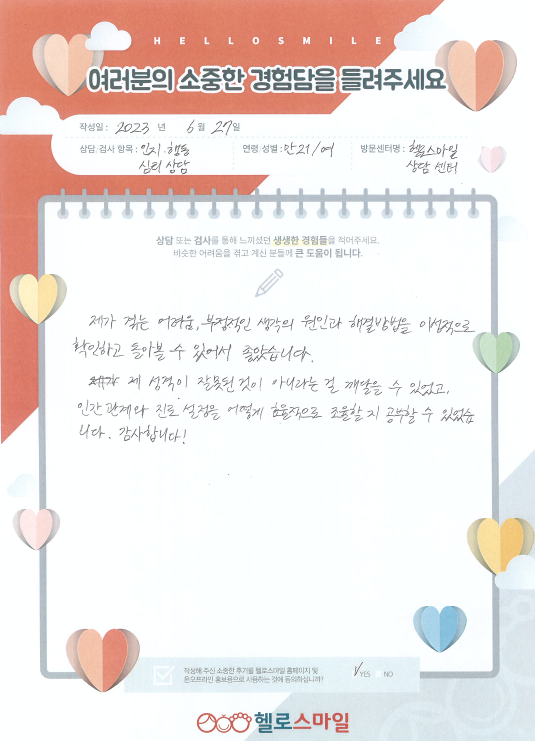 HELLOSMILE
여러분의 소중한 경험담을 들려주세요
작성일 : 2023 년 6 월 27 일
상담. 검사 항목 : 인지·행동 심리 상담
연령·성별 : 만21/여
방문센터명 : 헬로스마일 상담 센터
상담 또는 검사를 통해 느끼셨던 생생한 경험들을 적어주세요.
비슷한 어려움을 겪고 계신 분들께 큰 도움이 됩니다.
제가 겪는 어려움, 부정적인 생각의 원인과 해결방법을 이성적으로
확인하고 돌아볼 수 있어서 좋았습니다.
제 성격이 잘못된 것이 아니라는 걸 깨달을 수 있었고,
인간관계와 진로 설정을 어떻게 효율적으로 조율할 지 공부할 수 있었습
니다. 감사합니다!
작성해 주신 소중한 후기를 헬로스마일 홈페이지 및
온오프라인 홍보용으로 사용하는 것에 동의하십니까?
YES NO
헬로스마일